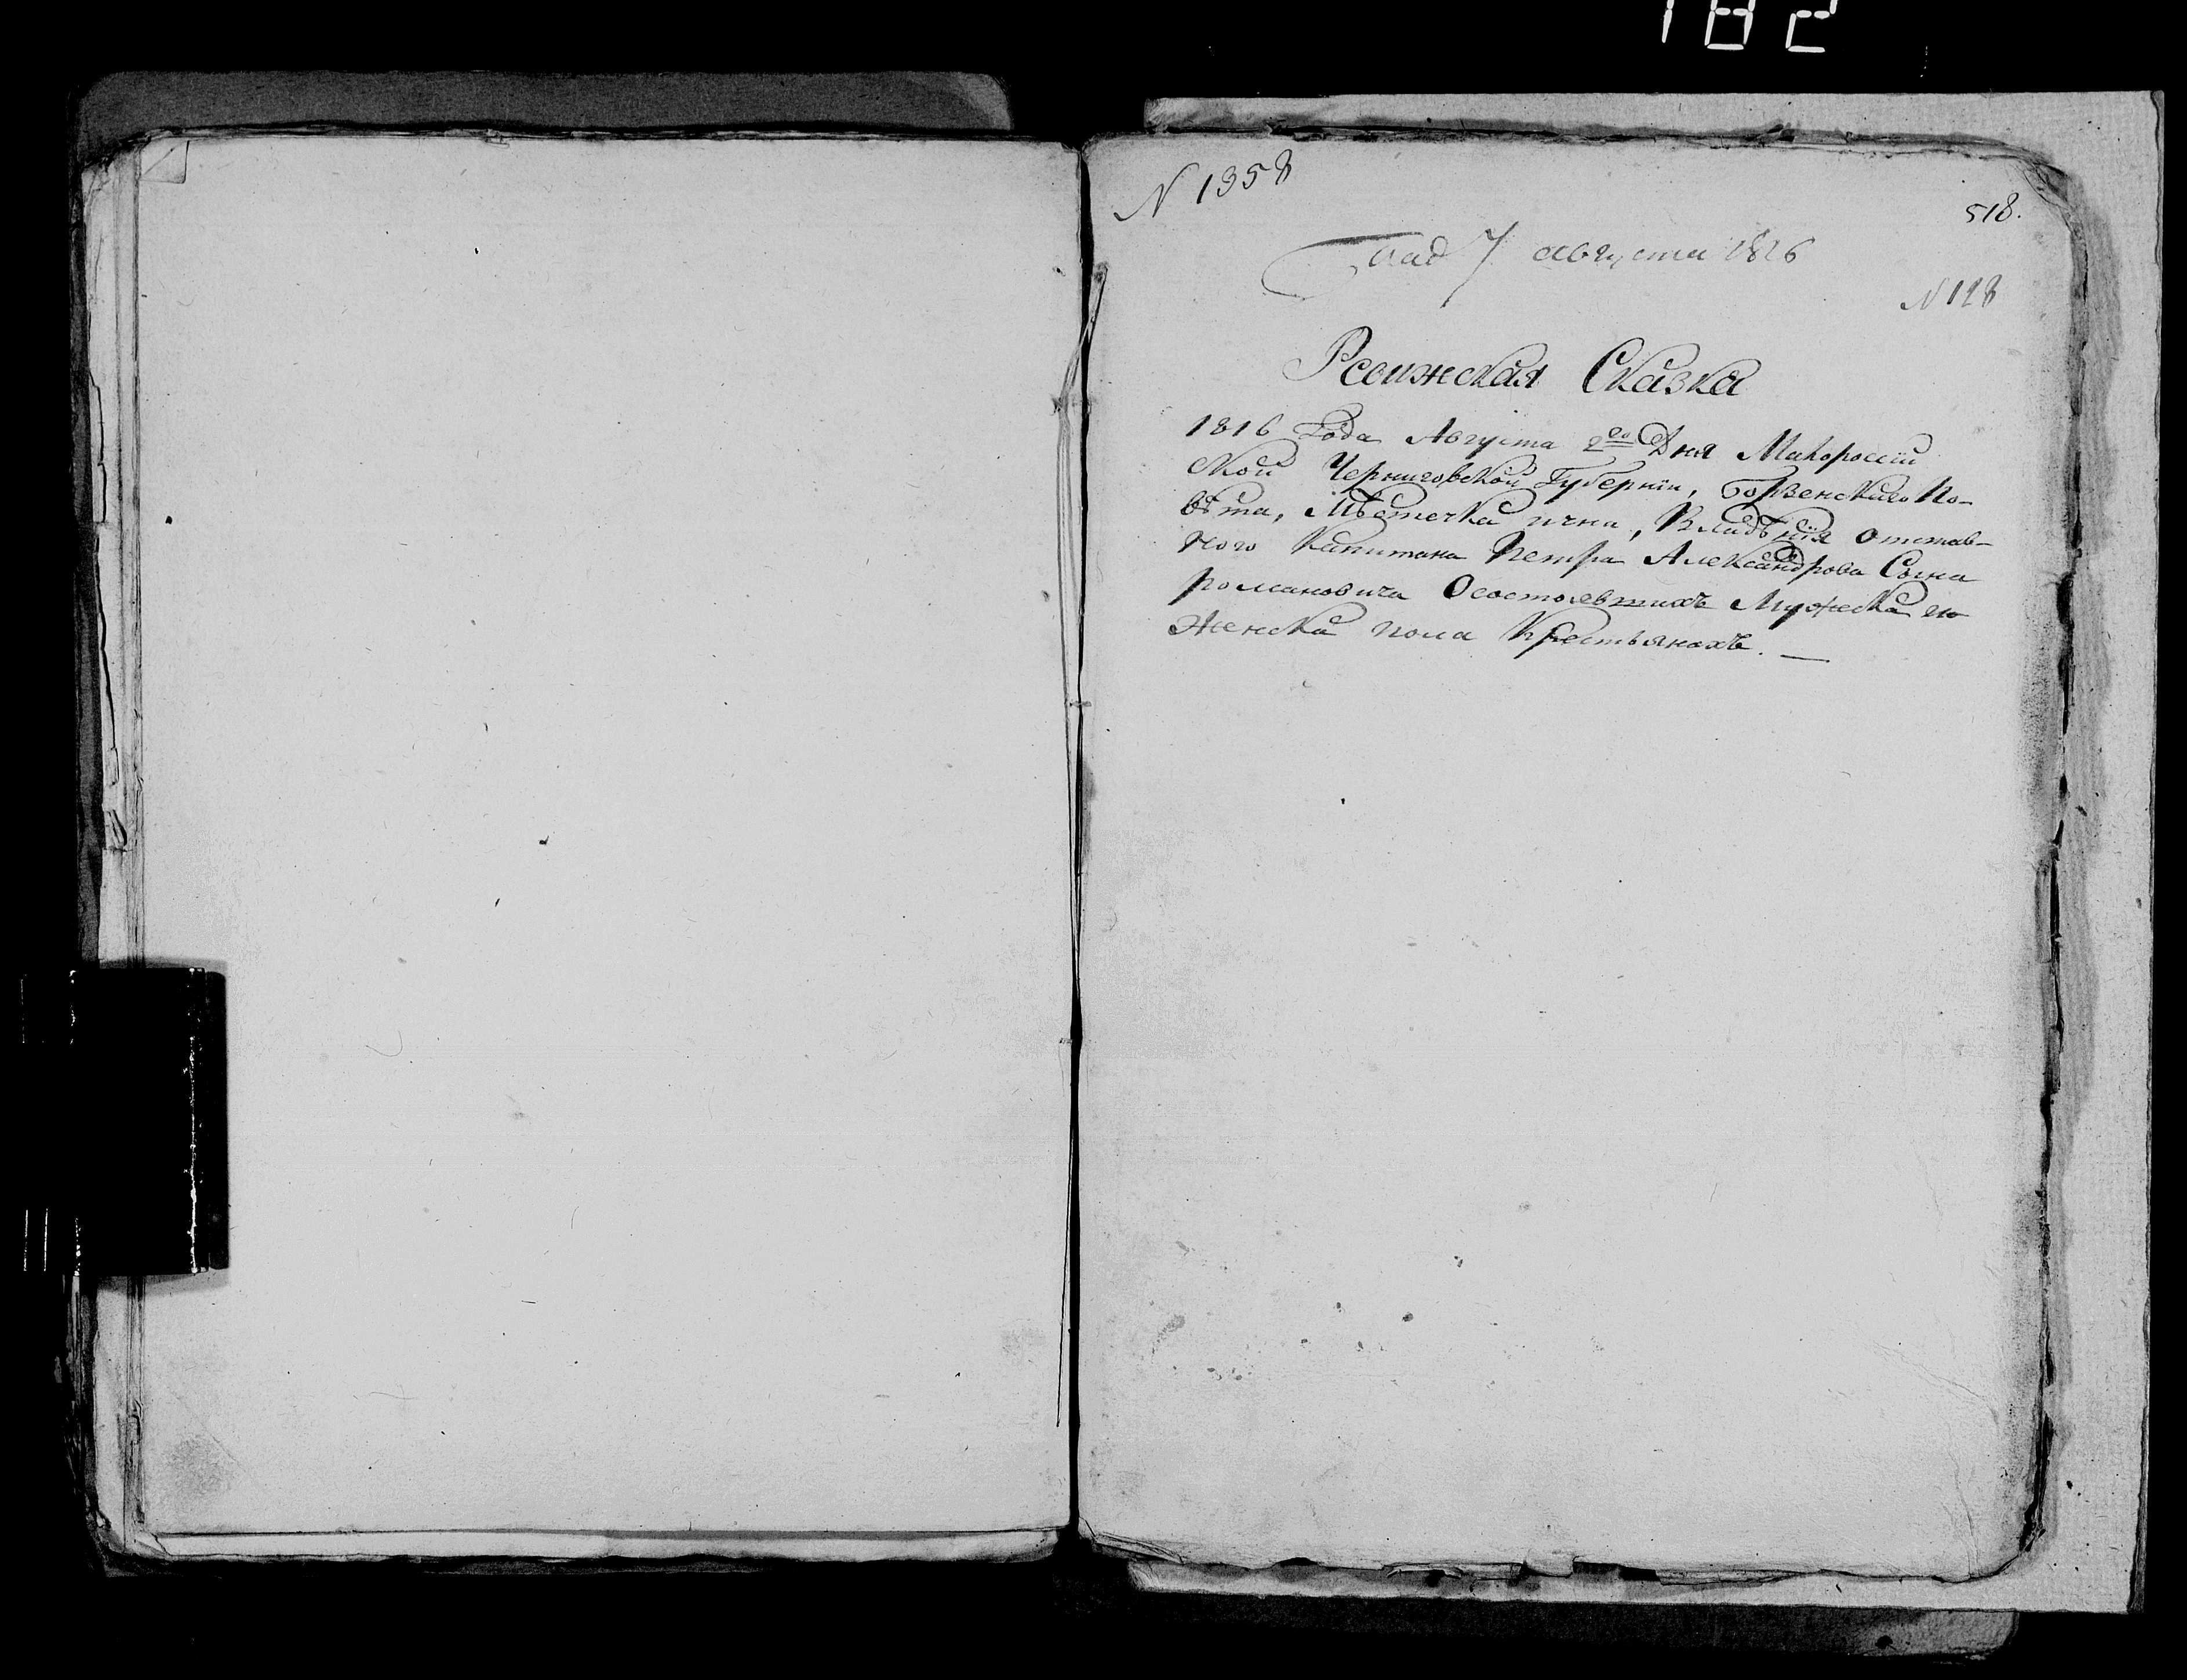 182
N 1358
518.
7 августа 1816
N 128
Ревижская Сказка
1816 Года Августа 2го Дня Малороссїй
ской Черниговской Губернїи, Борзенскаго По-
вѣта, Мѣстечка ични, Владѣнїя отстав-
ного Капитана Петра Александрова Сына
романовича Осостоявшихъ Мужеска ию
Женска пола Крестьянахъ. —